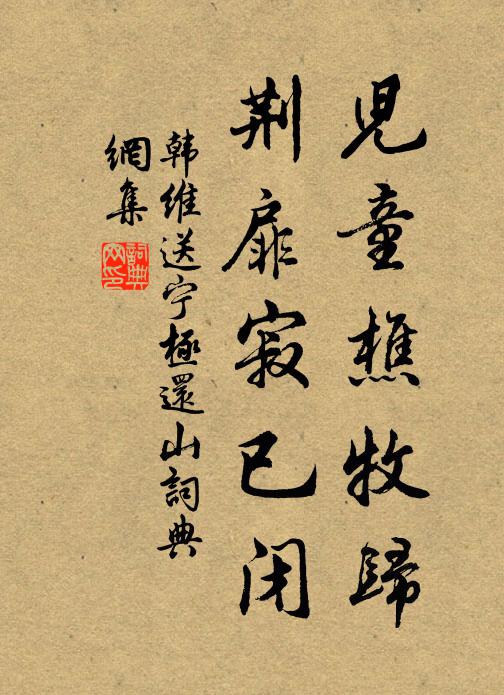 兒童樵牧歸
荆扉寂已闭
韩维送宁極還山詞典
網集
詞典網印